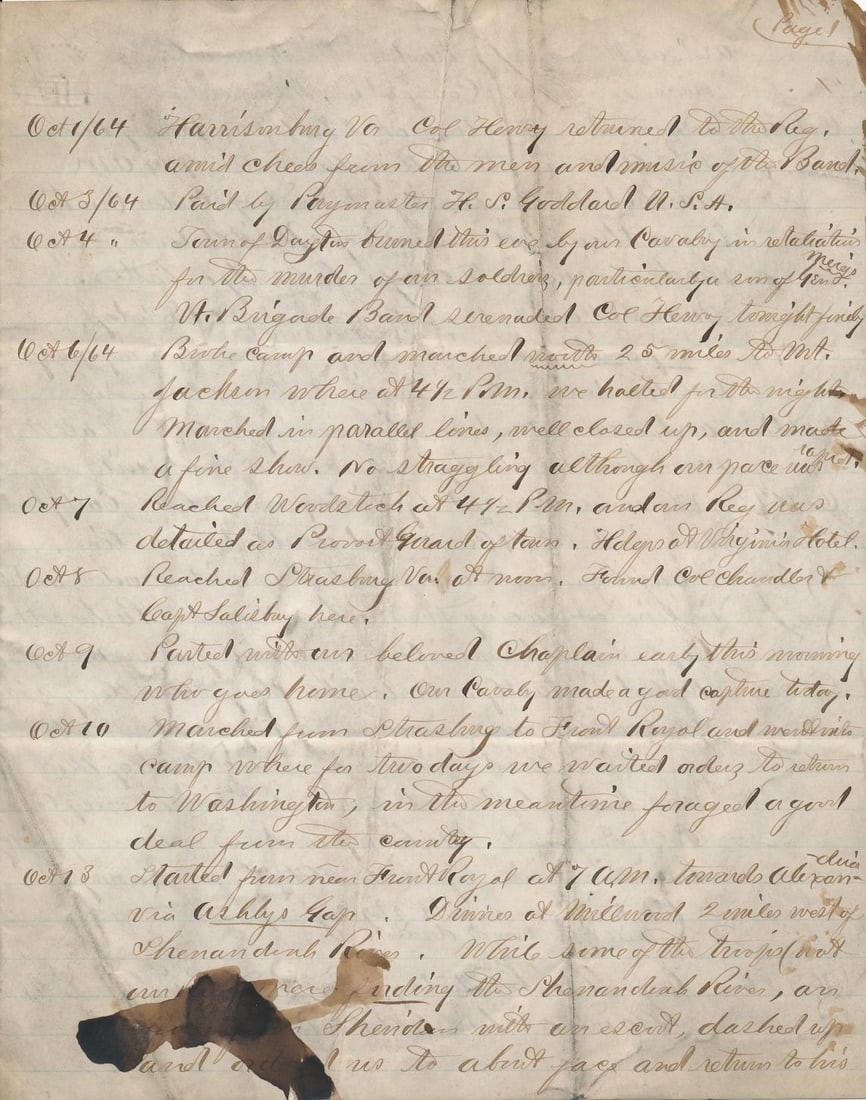 Page 1
Oct 1/64 Harrisonburg Va Col Henry returned to the Reg.
amid chees from the men and music of the Band.
Oct 3/64 Paid by Paymaster H. S. Goddard U. S. A.
Oct 4 " Town of Dayton burned this eve by our Cavalry in retaliation
for the murder of our soldiers, particularly a son of Gen. Meigs
Vt. Brigade Band serenaded Col Henry tonight finely
Oct 6/64 Broke camp and marched north 25 miles to Mt.
Jackson where at 4½ P.M. we halted for the night.
Marched in parallel lines, well closed up, and made
a fine show. No straggling although our pace was rapid.
Oct 7 Reached Woodstock at 4½ P.M. and our Reg was
detailed as Provost Guard of town. Hdqrs at Virginia Hotel.
Oct 8 Reached Strasburg Va. at noon. Found Col Chandler &
Capt Salisbury here.
Oct 9 Parted with our beloved Chaplain early this morning
who goes home. Our Cavalry made a good capture today.
Oct 10 Marched from Strasburg to Front Royal and went into
camp where for two days we waited orders to return
to Washington, in the meantime foraged a good
deal from the country.
Oct 13 Started from near Front Royal at 7 A.M. towards Alexandria
via Ashbys Gap. Dinner at Millwood 2 miles west of
Shenandoah River. While some of the troops (not
our were fording the Shenandoah River, an
Sheridan with an escort, dashed up
and ordered us to about face and return to his